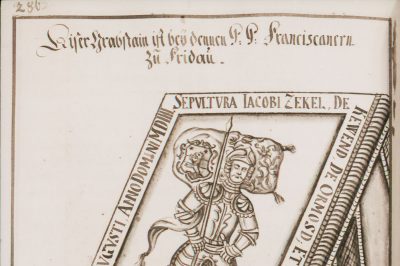 286
Diser Grabstain ist bey dennen P: P: Franciscanern
zu Fridau.
SEPULTURA IACOBI ZEKEL, DE
REWEND DE ORMOSD, ET
VGVSTI ANNO DOMINI MDIIII